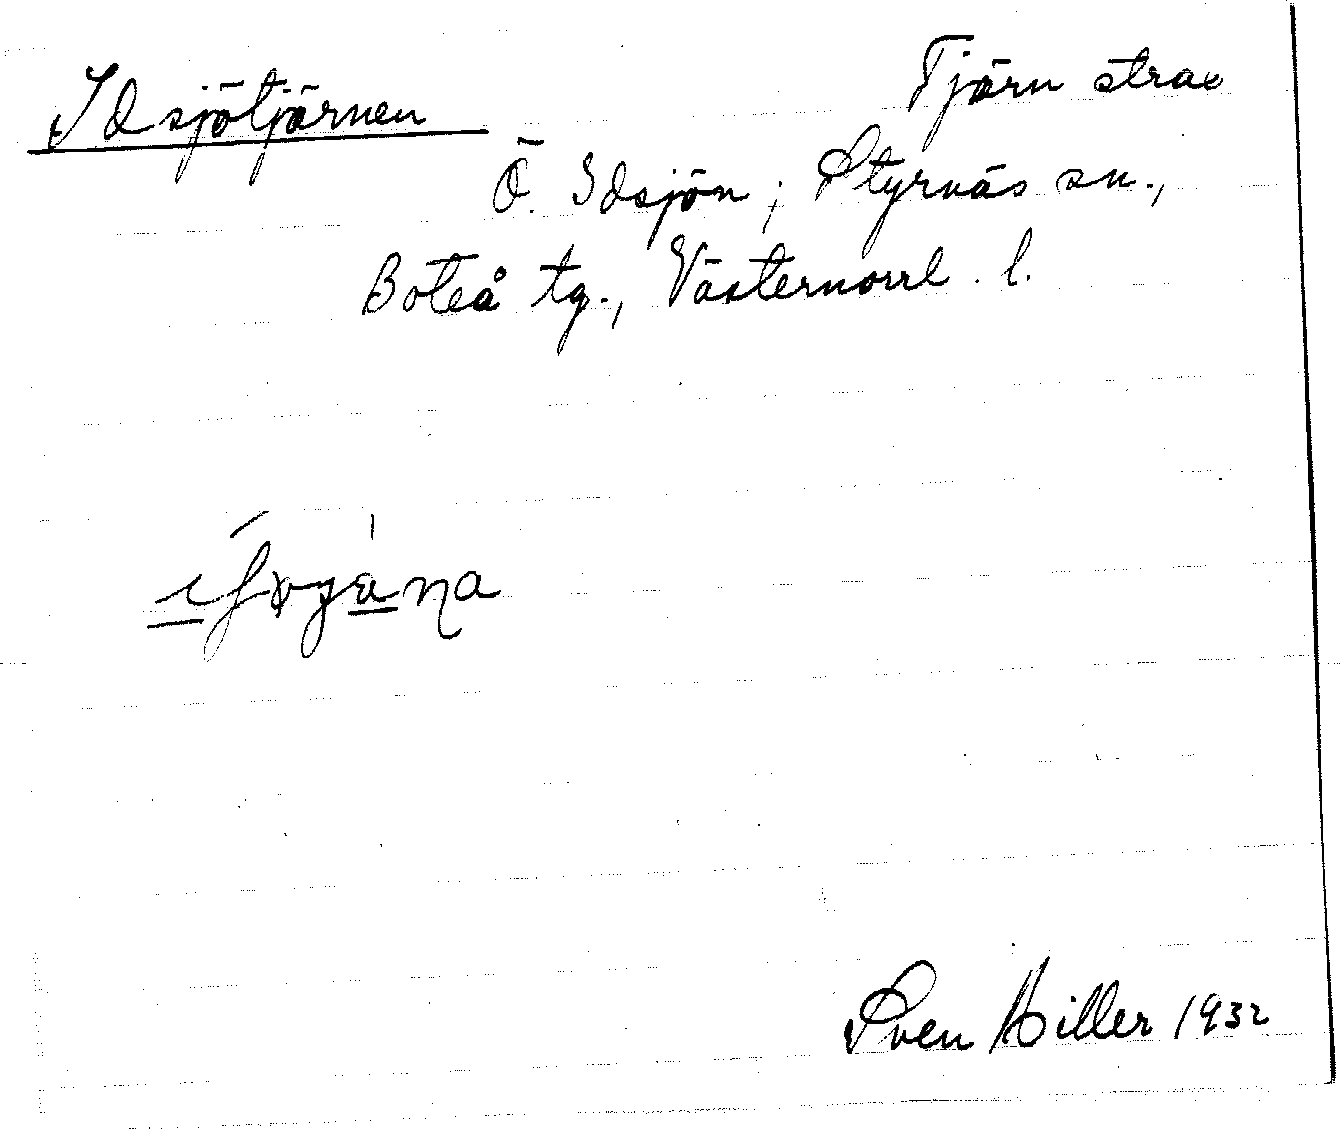 Idsjötjärnen
Tjärn strax
Ö. Idsjön; Styrnäs sn.,
Boteå tg., Västernorrl. l.
Sven Hiller 1932